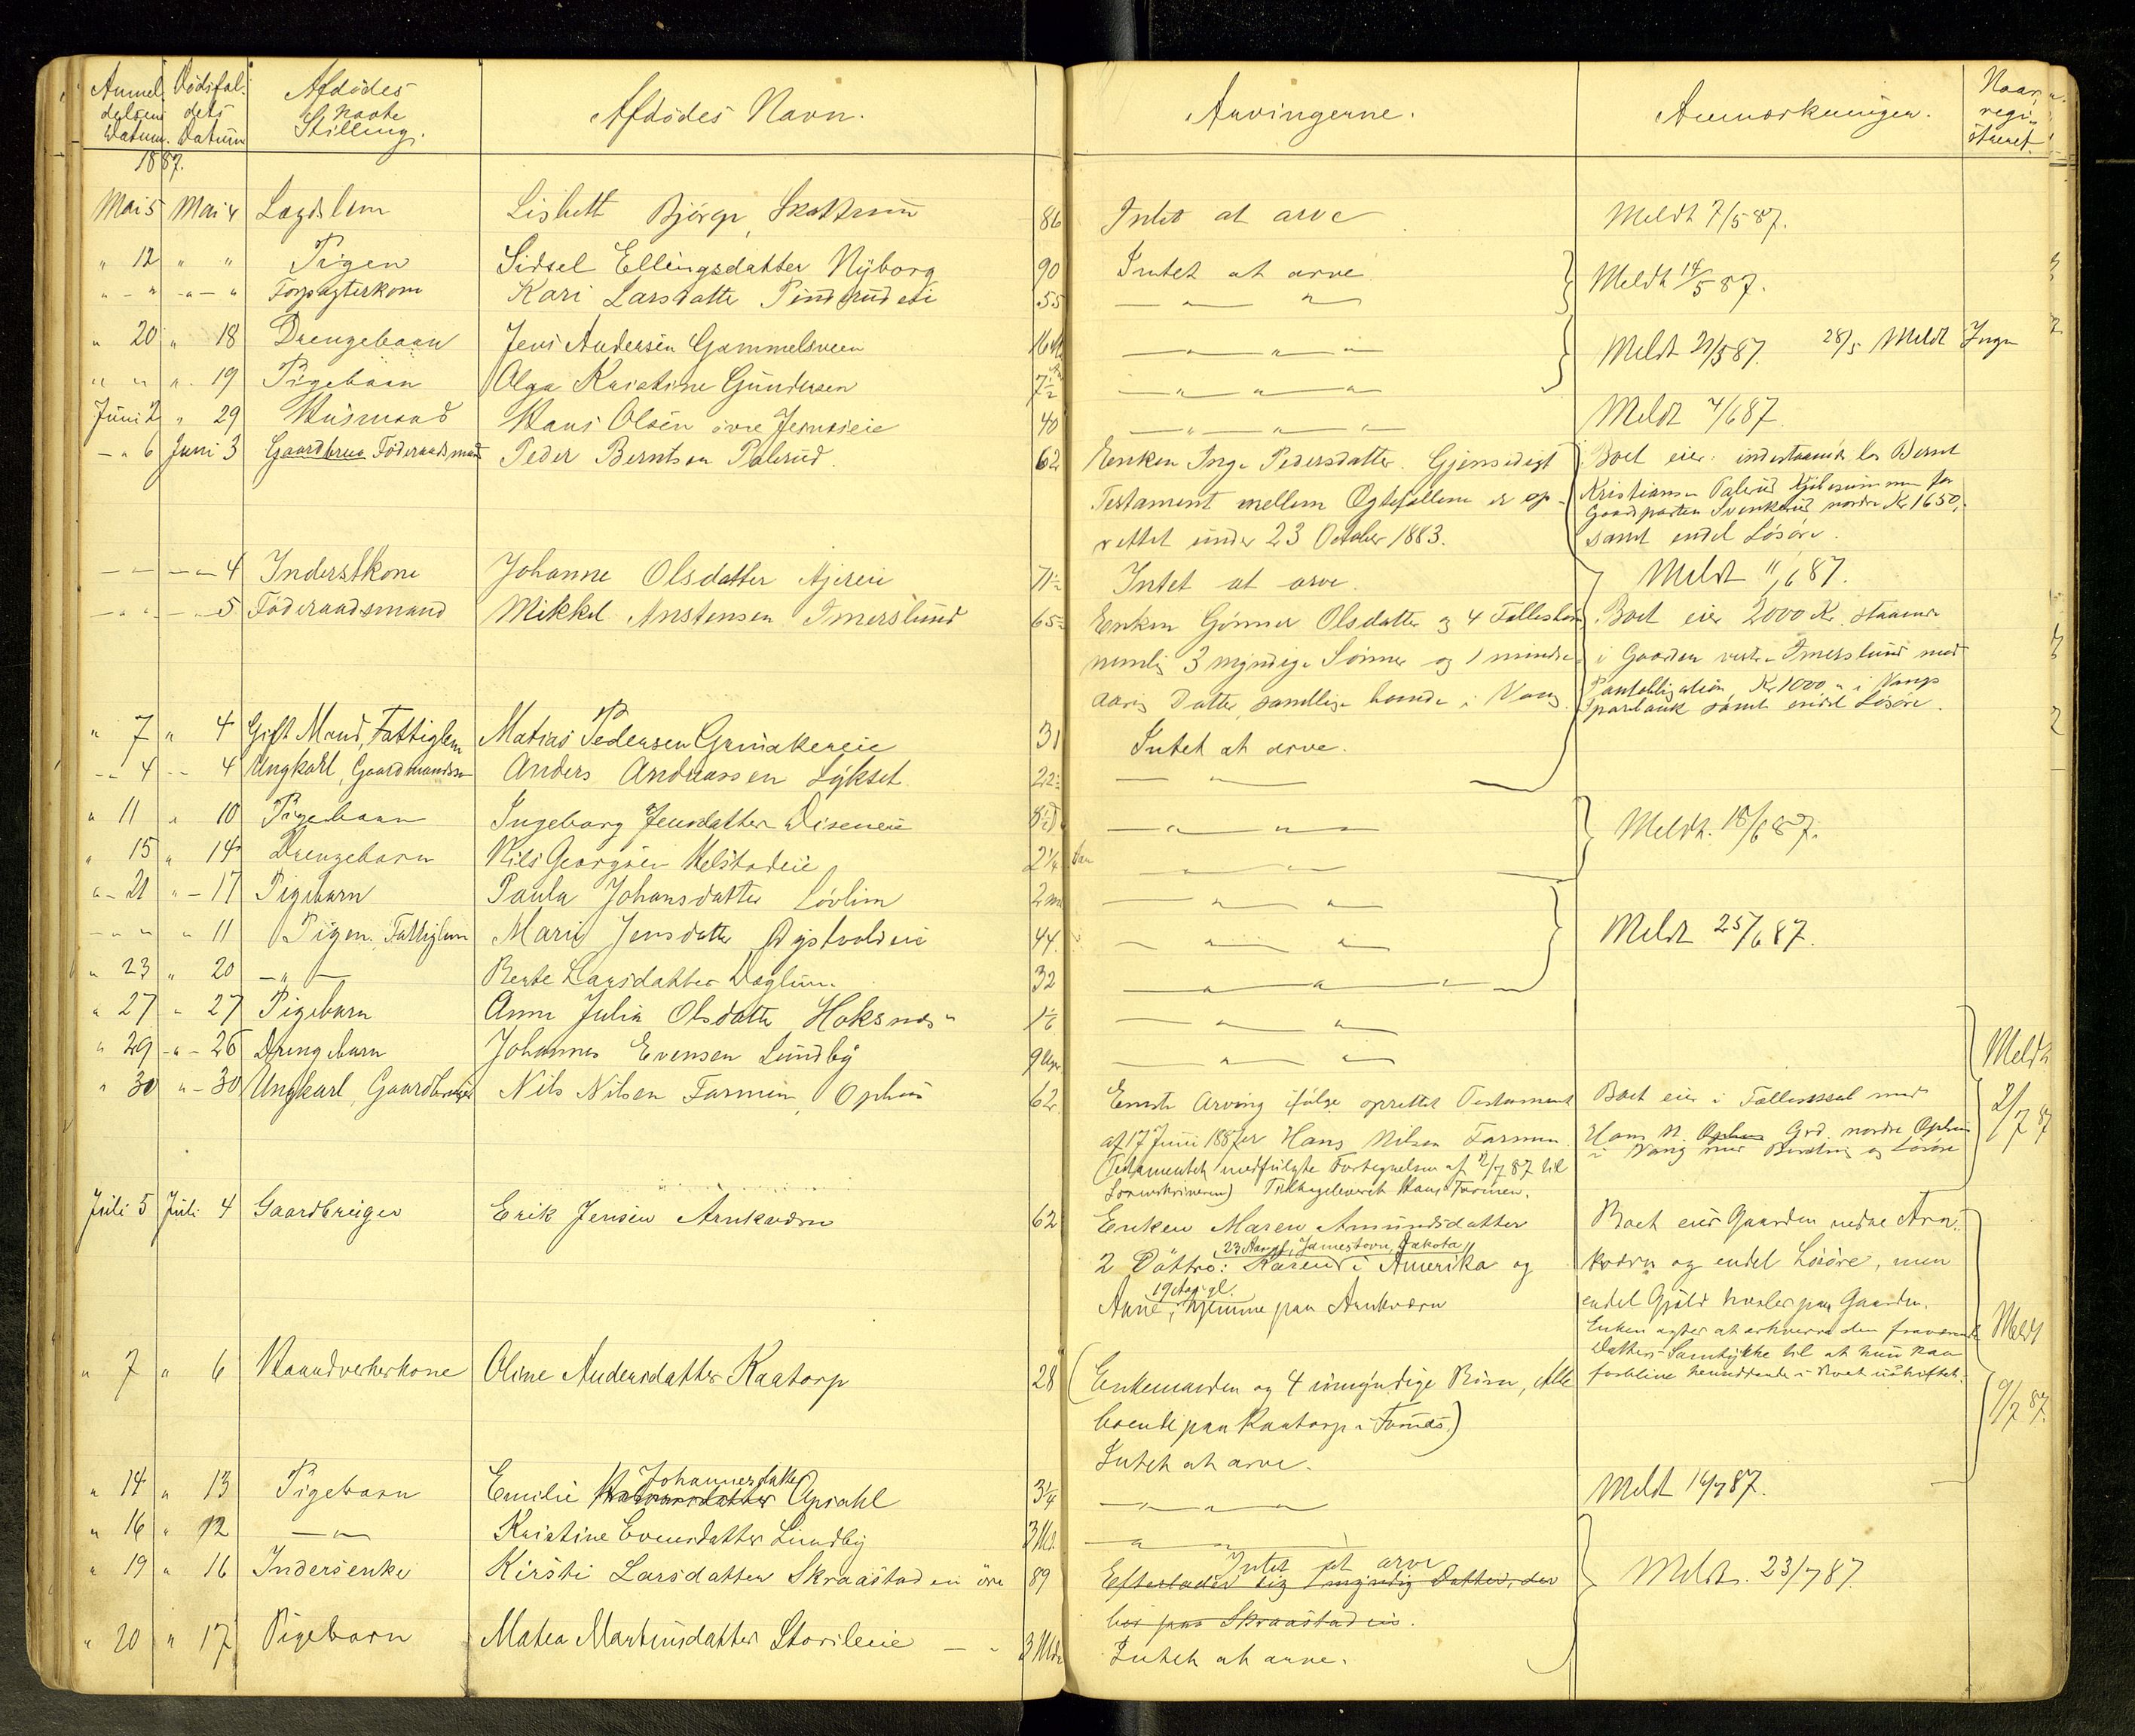 Anmel- Dödsfal- Afdödes Afdödes Navn. Arvingerne. Anmærkninger. Naar
delsens dets regi-
Datum. Datum Stilling. streret.
1887.
Mai 5 Mai 4 Lægdslem Lisbett Björge, Skattrum 86 Intet at arve Meldt 7/5 87.
" 12 " " Pigen Sidsel Ellingsdatter Nyborg 90 Intet at arve Meldt 14/5 87.
" - " - " - " Forpagterkone Kari Larsdatter 55 — " — " —
" 20 " 18 Drengebarn Jens Andersen Gammelsveen — " — " — Meldt 21/5 87. 28/5 Meldt Ingen
" " " 19 Pigebarn Olga Kristine Gundersen 7½ — " — " —
Juni 2 " 29 Husmand Hans Olsen övre 40 — " — " — Meldt 4/6 87.
- " 6 Juni 3 Gaardbrug Föderaadsmand Peder Berntsen Palerud. 62 Enken Inge Pedersdatter. Gjensidigt Boet eier indestaaende hos Bernt
Testament mellem Ægtefællerne er op- Kristiansen Palerud Kjöbesummen for
Gaardparten Svenkerud nordre Kr 1650,
rettet under 23 October 1883. samt endel Lösöre.
- " - - " - 4 Inderstkone Johanne Olsdatter 71 Intet at arve. Meldt 11/6 87.
- " - - " - 5 Föderaadsmand Mikkel Anstensen Imerslund 65 Enken Gönner Olsdatter og 4 Fællesbörn Boet eier 2000 Kr. staaende
nemlig 3 myndige Sönner og 1 mindre- i Gaarden vestre Imerslund mod
aarig Datter, samtlige boende i Vang. Pantobligation, Kr 1000 " i Vangs
Sparebank samt endel Lösöre.
" 7 " 4 Gift Mand, Fattiglem Matias Pedersen Grinakereie 31 Intet at arve.
- " 4 - " 4 Ungkarl, Gaardmandssön Anders Andreassen Lykset 22 — " —
" 11 " 10 Pigebarn Ingeborg Jensdatter Diseneie — " — " — Meldt. 18/6 87.
" 15 " 14 Drengebarn Nils Georgsen Kelstadeie 2¼ Aar — " — " —
" - 21 " - 17 Pigebarn Paula Johansdatter Lövlien 2 m — " — " —
- " - " " 11 Pigen, Fattiglem Mari Jensdatter 44 — " — " — Meldt 25/6 87.
" 23 " 20 — " — Berte Larsdatter Dæglum 32 — " — " —
" 27 " 27 Pigebarn Anne Julia Olsdatter Hoksnes — " — " —
" 29 - " - 26 Drengebarn Johannes Evensen Lundby 9 Uger — " — " — Meldt
" 30 " - 30 Ungkarl, Gaardbruger Nils Nilsen Farmen, Ophus 62 Eneste Arving ifölge oprettet Testament Boet eier i Fællesskab med 2/7 87
af 17 Juni 1887 er Hans Nilsen Farmen. Hans N. Ophus Grd. nordre Ophus
Testamentet medfulgte Fortegnelsen af 2/7 87 til i Vang med Besætning og Lösöre
Sorenskriveren) Tilbageleveret Hans Farmen.
Juli 5 Juli 4 Gaardbruger Erik Jensen Arnkværn 62 Enken Maren Amundsdatter Boet eier Gaarden nedre Arn-
23 Aar gl, Jamestown, Dakota
2 Döttre: Karen i Amerika og kværn og endel Lösöre, men
19 Aar gl.
Anne, hjemme paa Arnkværn endel Gjæld hviler paa Gaarden.
Enken agter at erhverve den fraværende Meldt
Datters Samtykke til at hun kan
" 7 " 6 Haandverkerkone Oline Andersdatter Kaatorp 28 (Enkemanden og 4 umyndige Börn, Alle forblive hensiddende i Boet uskiftet. 9/7 87.
boende paa Kaatorp i Furnes)
Intet at arve.
Johannesdatter
" 14 " 13 Pigebarn Emilie Opsahl 3¼ — " — " — Meldt 16/7 87.
" 16 " 12 — " — Kristine Evensdatter Lundby 3 Md. — " —
Intet at arve
" 19 " 16 Inderstenke Kirsti Larsdatter Skraastadeie övre 89 Efterlader sig 1 myndig Datter, der Meldt. 23/7 87.
bor paa Skraastadeie.
" 20 " 17 Pigebarn Matea Martinusdatter Storileeie — " 3 Mdr Intet at arve.